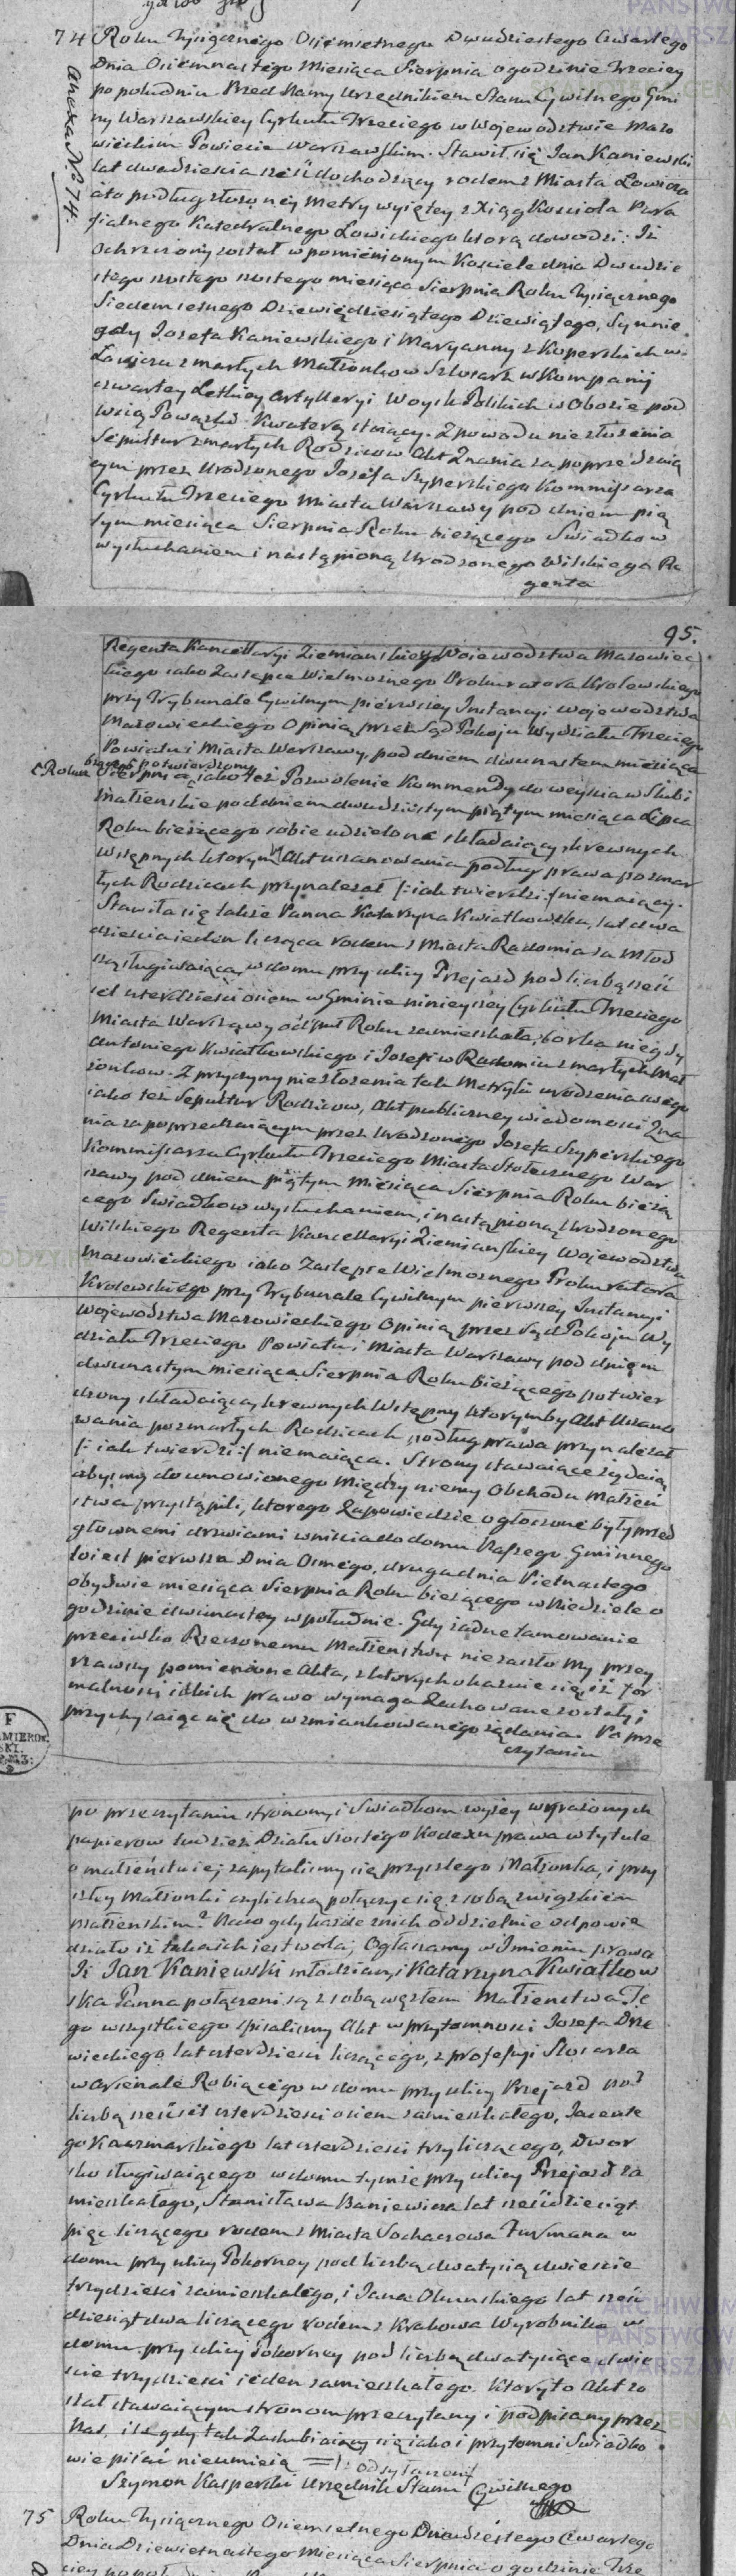 74 Roku Tysiącznego Ośiemsetnego Dwudziestego Czwartego
Dnia Osiemnastego Miesiąca Sierpnia o godzinie Trzeciey
po południu. Przed Namy Urzędnikiem Stanu Cywilnego Gmi
ny Warszawskiey Cyrkułu Trzeciego w Wojewodztwie Mazo
wieckim Powiecie Warszawskim. Stawił się Jan Kaniewski
lat dwadzieścia sześć dochodzący rodem z Miasta Łowicza
a to podług złożoney Metry wyiętey z Xiąg Kościoła Para
fialnego Katedralnego Łowickiego którą dowodzi: Iż
Ochrzczony został w pomienionym Kościele dnia Dwudzie
stego szóstego miesiąca Sierpnia Roku Tysiącznego
Siedemsetnego Dziewięćdziesiątego Dziewiątego, Syn nie
gdy Jozefa Kaniewskiego i Maryanny z Koperskich w
Łowiczu zmarłych Małżonkow Szlosarz w Kompanij
czwartey Letkiey Artylleryi Woysk Polskich w Obozie pod
wsią Powązki Kwaterą stoiący. Z powodu nie złożenia
Sepultur zmarłych Rodzicow Akt Znania za poprzedzaią
cym przez Urodzonego Jozefa Szyperskiego Kommissarza
Cyrkułu Trzeciego Miasta Warszawy pod dniem pią
tym miesiąca Sierpnia Roku bieżącego Swiadkow
wysłuchaniem i nastąpioną Urodzonego Wilskiego Re
genta
Anexa No. 74.
95.
Regenta Kancellaryi Ziemianskiey Wojewodztwa Mazowiec
kiego iako Zastępce Wielmożnego Prokuratora Krolewskiego
przy Trybunale Cywilnym pierwszey Instancyi Wojewodztwa
Mazowieckiego Opinią przez Sąd Pokoju Wydziału Trzeciego
Powiatu i Miasta Warszawy, pod dniem dwunastem miesiąca
Roku bieżącego potwierdzony
Sierpnia, iako też Pozwolenie Kommendy do weyścia w Śluby
małżenskie pod dniem dwudziestym piątym miesiąca Lipca
Roku bieżącego sobie udzielone składaiący, krewnych
Wstępnych ktorym by Akt uszanowania podług prawa po zmar
łych Rodzicach przynależał /: iak twierdzi :/ niemaiący.
Stawiła się także Panna Katarzyna Kwiatkowska, lat dwa
dzieścia ieden licząca rodem z Miasta Radomia za Młod
szą sługiwaiąca, w domu przy ulicy Przejazd pod liczbą sześć
set czterdzieści ośiem w Gminie ninieyszey Cyrkułu Trzeciego
Miasta Warszawy od puł Roku zamieszkała, Corka niegdy
Antoniego Kwiatkowskiego i Jozefy w Radomiu zmarłych Mał
żonkow. Z przyczyny nie złożenia tak Metryki urodzenia swego
iako też Sepultur Rodzicow, Akt publiczney wiadomości Zna
nia za poprzedzaiącym przez Urodzonego Jozefa Szyperskiego
Kommissarza Cyrkułu Trzeciego Miasta Stołecznego War
szawy pod dniem piątym Miesiąca Sierpnia Roku bieżą
cego Swiadkow wysłuchaniem, i nastąpioną Urodzonego
Wilskiego Regenta Kancellaryi Ziemianskiey Wojewodztwa
Mazowieckiego iako Zastępce Wielmożnego Prokuratora
Krolewskiego przy Trybunale Cywilnym pierwszey Instancyi
Wojewodztwa Mazowieckiego Opinią przez Sąd Pokoju Wy
działu Trzeciego Powiatu i Miasta Warszawy pod dniem
dwunastym miesiąca Sierpnia Roku bieżącego potwier
dzony składaiąca, krewnych Wstępny ktorymby Akt Uszano
wania po zmarłych Rodzicach podług prawa przynależał
/: iak twierdzi :/ niemaiąca. Strony stawaiące żądaią
abyśmy do umowionego między niemy Obchodu Małżeń
stwa przystąpili, ktorego Zapowiedzie ogłoszone były przed
głownemi drzwiami wniścia do domu Naszego Gminnego
to iest pierwsza Dnia Osmego, druga dnia Piętnastego
obydwie miesiąca Sierpnia Roku bieżącego w Niedziele o
godzinie dwunastey w południe. Gdy żadne tamowanie
przeciwko Rzeczonemu Małżenstwu nie zaszło My przey
rzawszy pomienione Akta, z ktorych okazuie się iż for
malności iakich prawo wymaga Zachowane zostały i
przychylaiąc się do wzmiankowanego żądania. Po prze
czytaniu
po przeczytaniu stronom, i Swiadkom wyżey wyrażonych
papierow tudzież Działu Szostego Kodexu prawa w tytule
o małżenstwie, zapytaliśmy się przyszłego Małżonka, i przy
szłey Małżonki czyli chcą połączyć się z sobą związkiem
Małżenskim? Na co gdy każde z nich oddzielnie odpowie
działo iż taka ich iest wola; Ogłaszamy w Imieniu prawa
Iż Jan Kaniewski młodzian, i Katarzyna Kwiatkow
ska Panna połączeni są z sobą węzłem Małżenstwa. Te
go wszystkiego spisaliśmy Akt w przytomności Jozefa Drze
wieckiego lat czterdzieści liczącego, z profesyi Szlosarza
w Arsenale Robiącego w domu przy ulicy Przejazd pod
liczbą sześćset czterdzieści ośiem zamieszkałego, Jacente
go Kaczmarskiego lat czterdzieści trzy liczącego, Dwor
sko sługiwaiącego w domu tymże przy ulicy Przejazd za
mieszkałego, Stanisława Baniewicza lat sześćdziesiąt
pięć liczącego rodem z Miasta Sochaczewa Furmana w
domu przy ulicy Pokorney pod liczbą dwatysiące dwieście
trzydzieści zamieszkałego, i Jana Olszewskiego lat sześć
dziesiąt dwa liczącego rodem z Krakowa Wyrobnika w
domu przy ulicy Pokorney pod liczbą dwatysiące dwie
ście trzydzieści ieden zamieszkałego. Ktory to Akt zo
stał stawaiącym stronom przeczytany i podpisany przez
Nas, iż gdy tak Zaślubiaiący się iako i przytomni Swiadko
wie pisać nieumieią
Szymon Kasperski Urzędnik Stanu Cywilnego
75 Roku Tysiącznego Osiemsetnego Dwudziestego Czwartego
Dnia Dziewietnastego Miesiąca Sierpnia o godzinie Trze